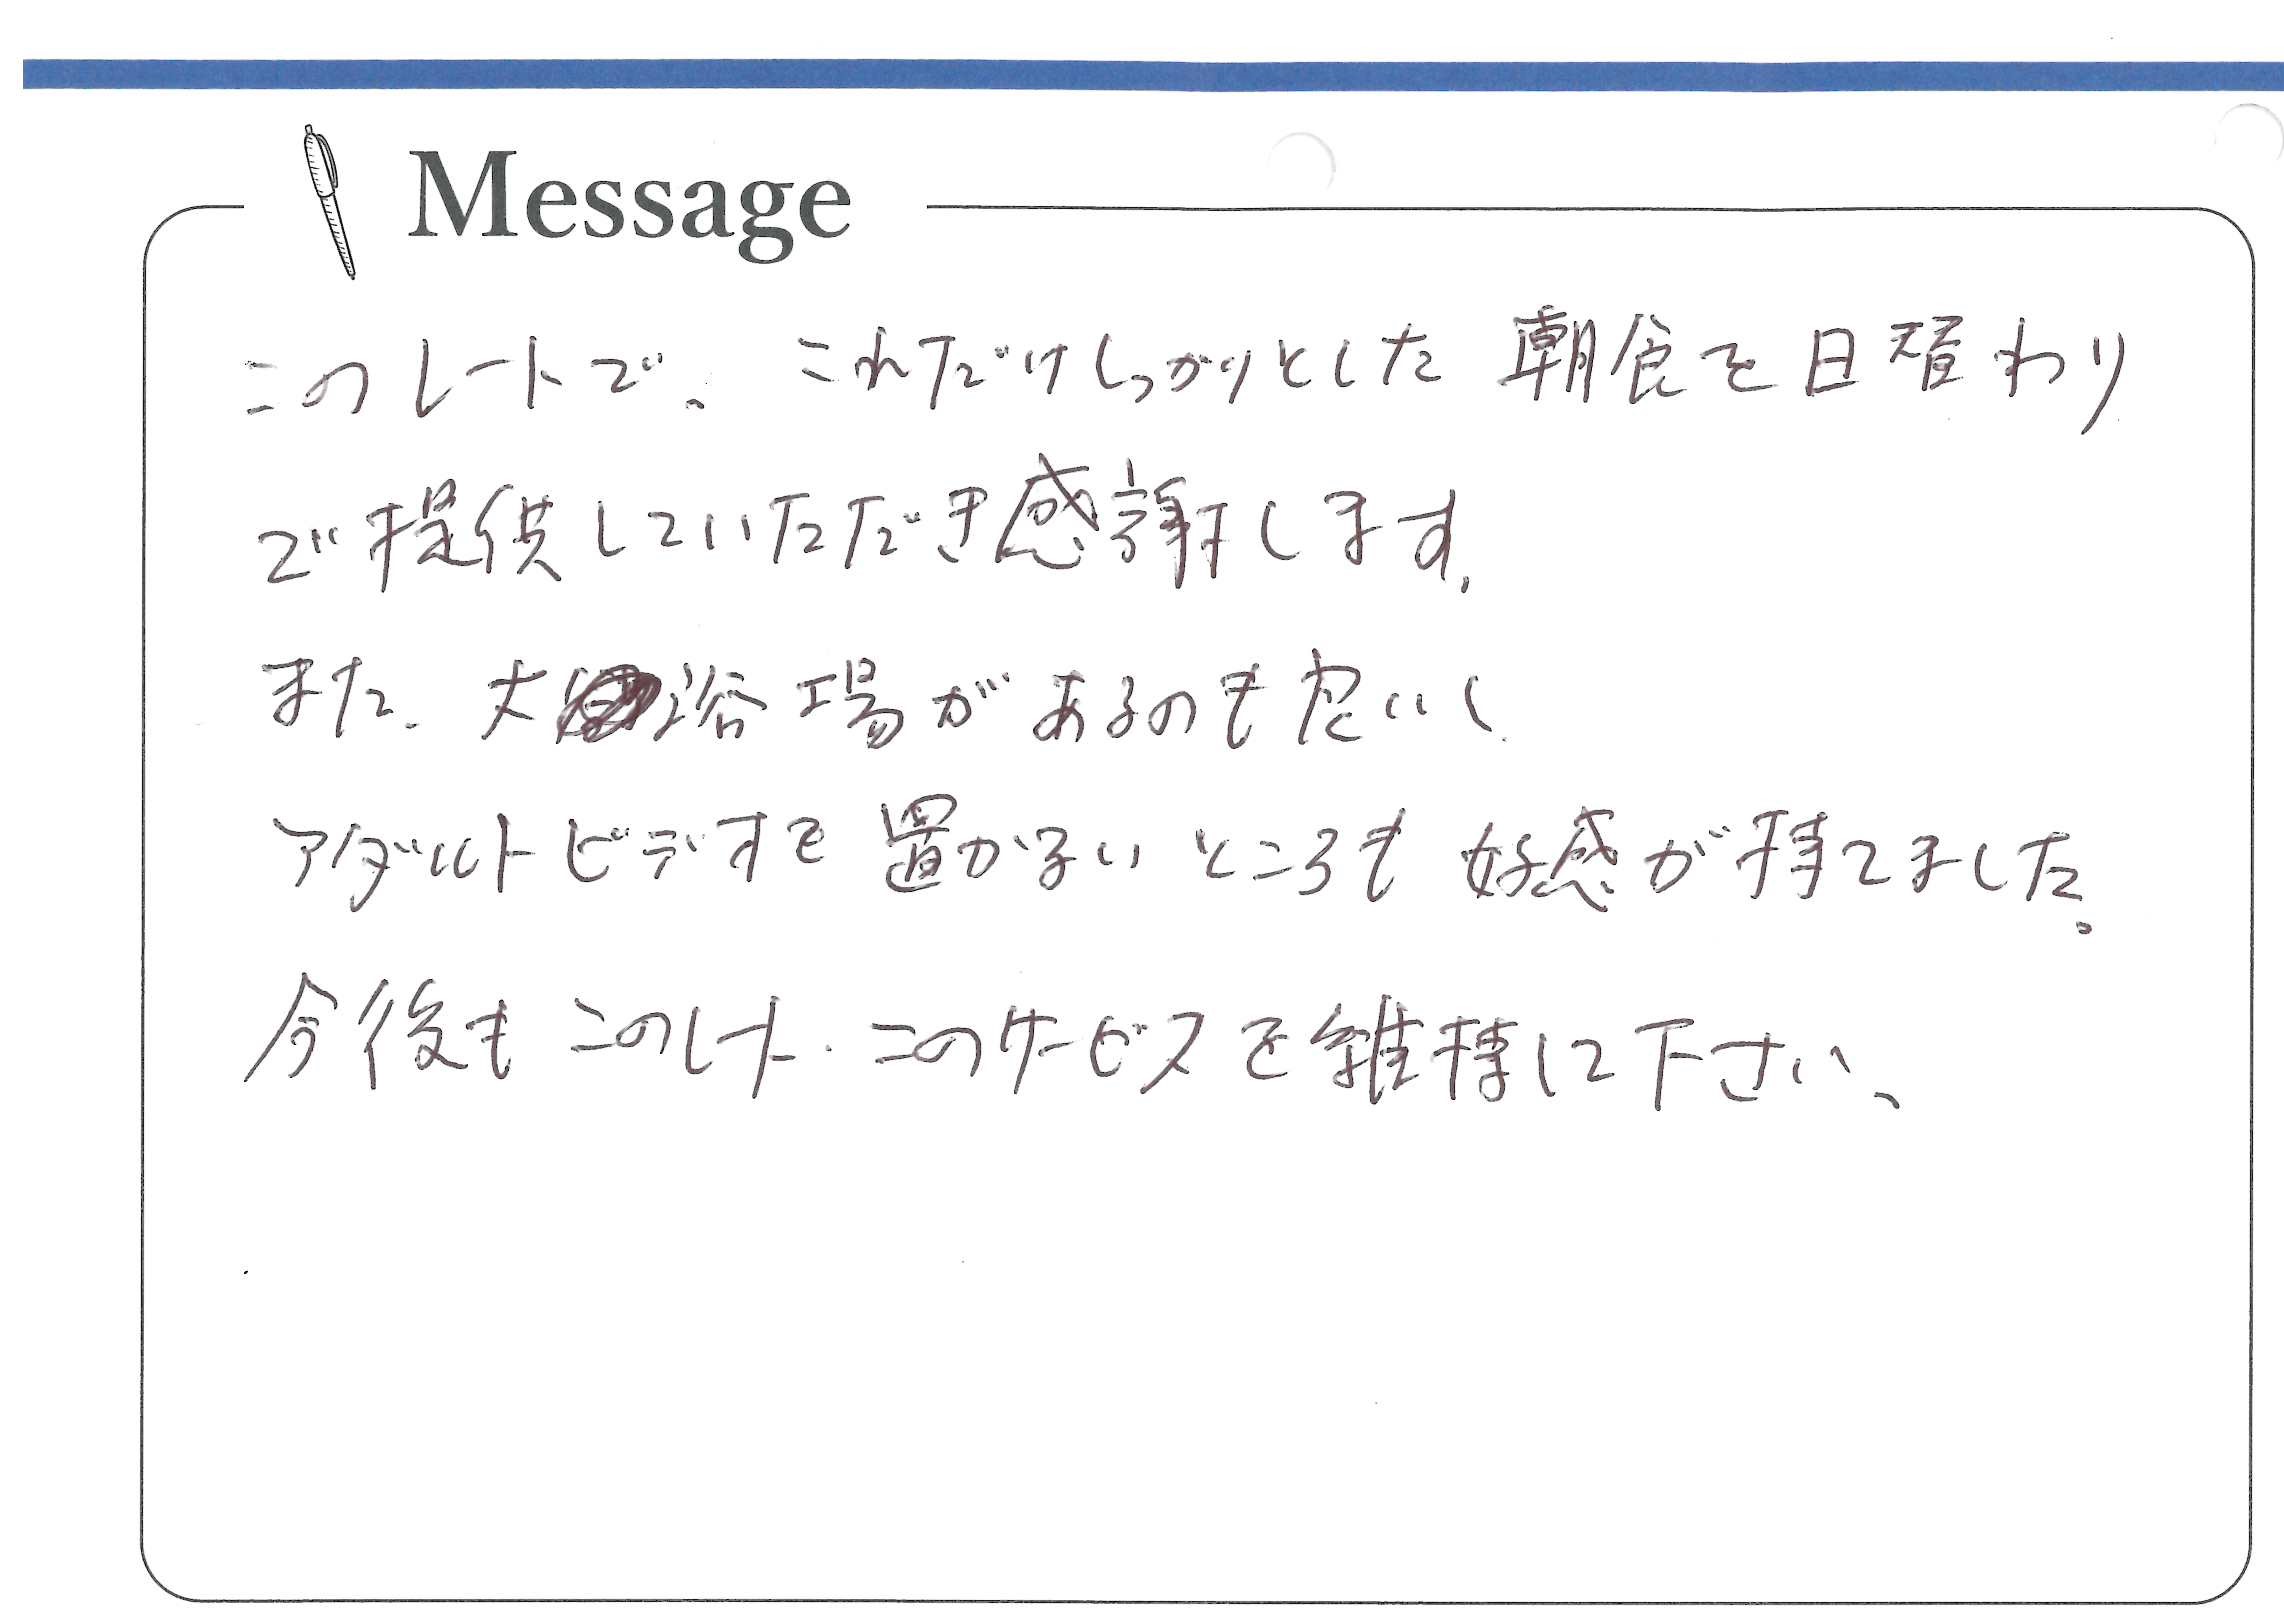 Message
このレートで、これだけしっかりとした朝食を日替わり
で提供していただき感謝します。
また、大浴場があるのも良いし
アダルトビデオを置かないところも好感が持てました。
今後もこのレート、このサービスを維持して下さい、